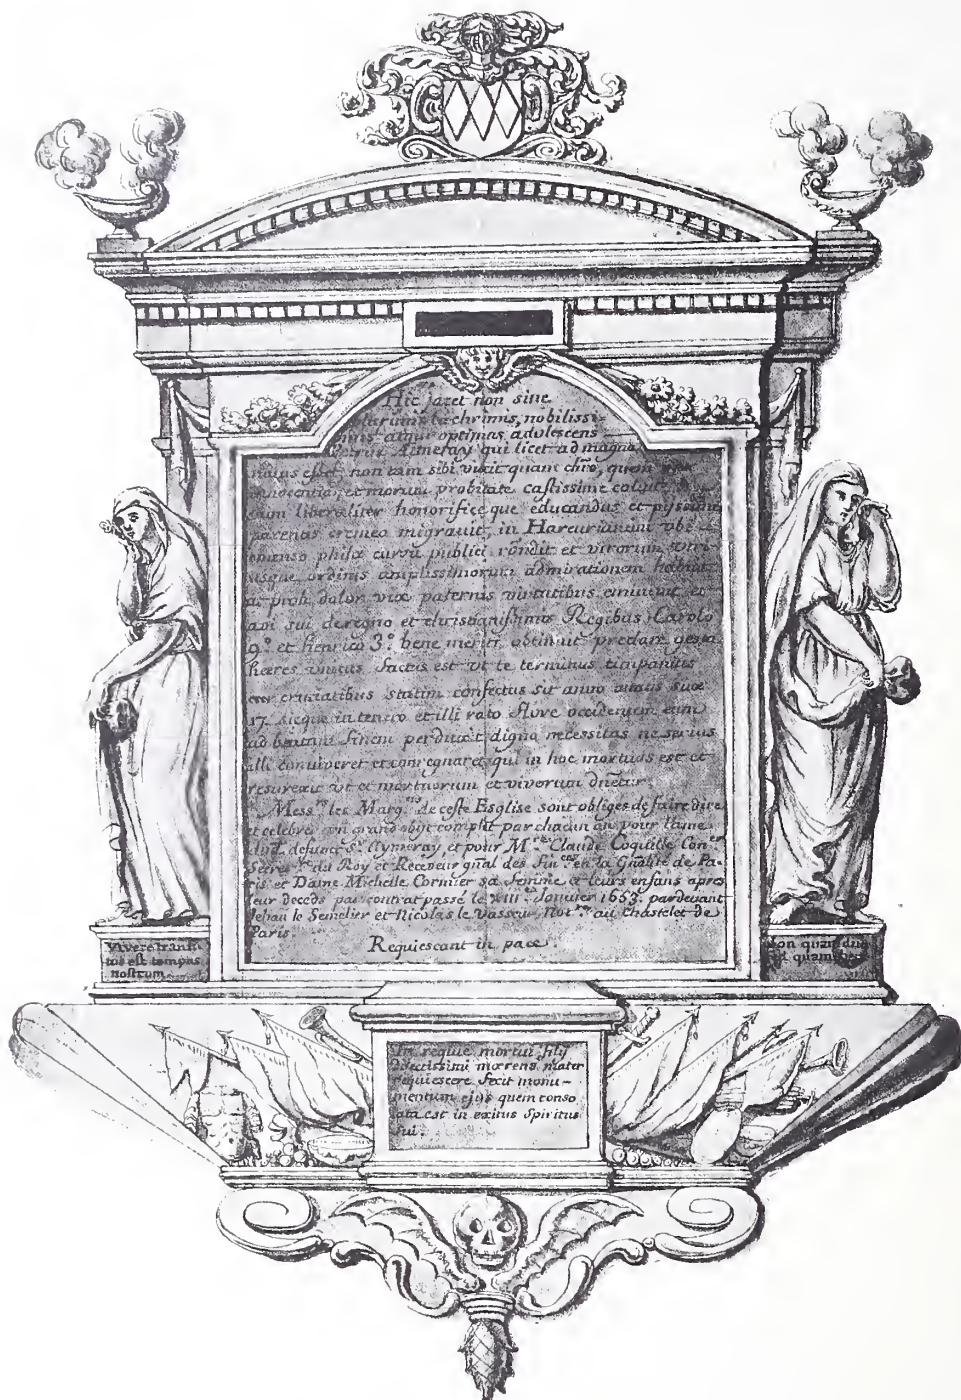 Hic jacet non sine
plurimis lachrimis, nobilissi-
mus atque optimus adolescens
Aimeray qui licet ad magna
natus esset non tam sibi vixit quam chrõ, quem
innocentia, et morum probitate castissime coluit
cum liberaliter honorifice que educandus et
cremeo migravit, in Harcurianum vbi
emenso philæ cursu publice et virorum
usque ordinis amplissimorum admirationem habuit
ac proh dolor vix paternis virtutibus eminuit et
avi sui de regno et christianissimis Regibus Carolo
9.º et henrico 3.º bene meriti, obtinuit preclare gesta
heres vnicus factus est vt te terminus timpanites
cruciatibus statim confectus sit anno ætatis suæ
17 sicque in tenero et illi rato flore occidentem eum
ad beatum finem perduxit digna necessitas ne serius
illi conviveret et conregnaret, qui in hoc mortuus est et
resurexit vt et mortuorum et vivorum
Mess.rs les Marg.rs de ceste Esglise sont obliges de faire dire
et celebrer vn grand obyt complet par chacun an, pour l'ame
dud. defunct S.r Aymeray et pour M.re Claude Coquille Con.er
Secret.re du Roy et Receveur gñal des fin.ces en la Gñalité de Pa-
ris et Dame Michelle Cormier sa femme et leurs enfans apres
leur deceds par contrat passé le Janvier 1653. pardevant
Jehan le Semelier et Nicolas le Vasseur, Not.res au Chastelet de
Paris.
Requiescant in pace.
Vivere transi-
tus est tempus
nostrum
Non quam diu
quam
In requie mortui fily
dilectissimi mœrens mater
requiescere fecit monu-
mentum ejus quem conso
lata est in exitus Spiritus
sui.